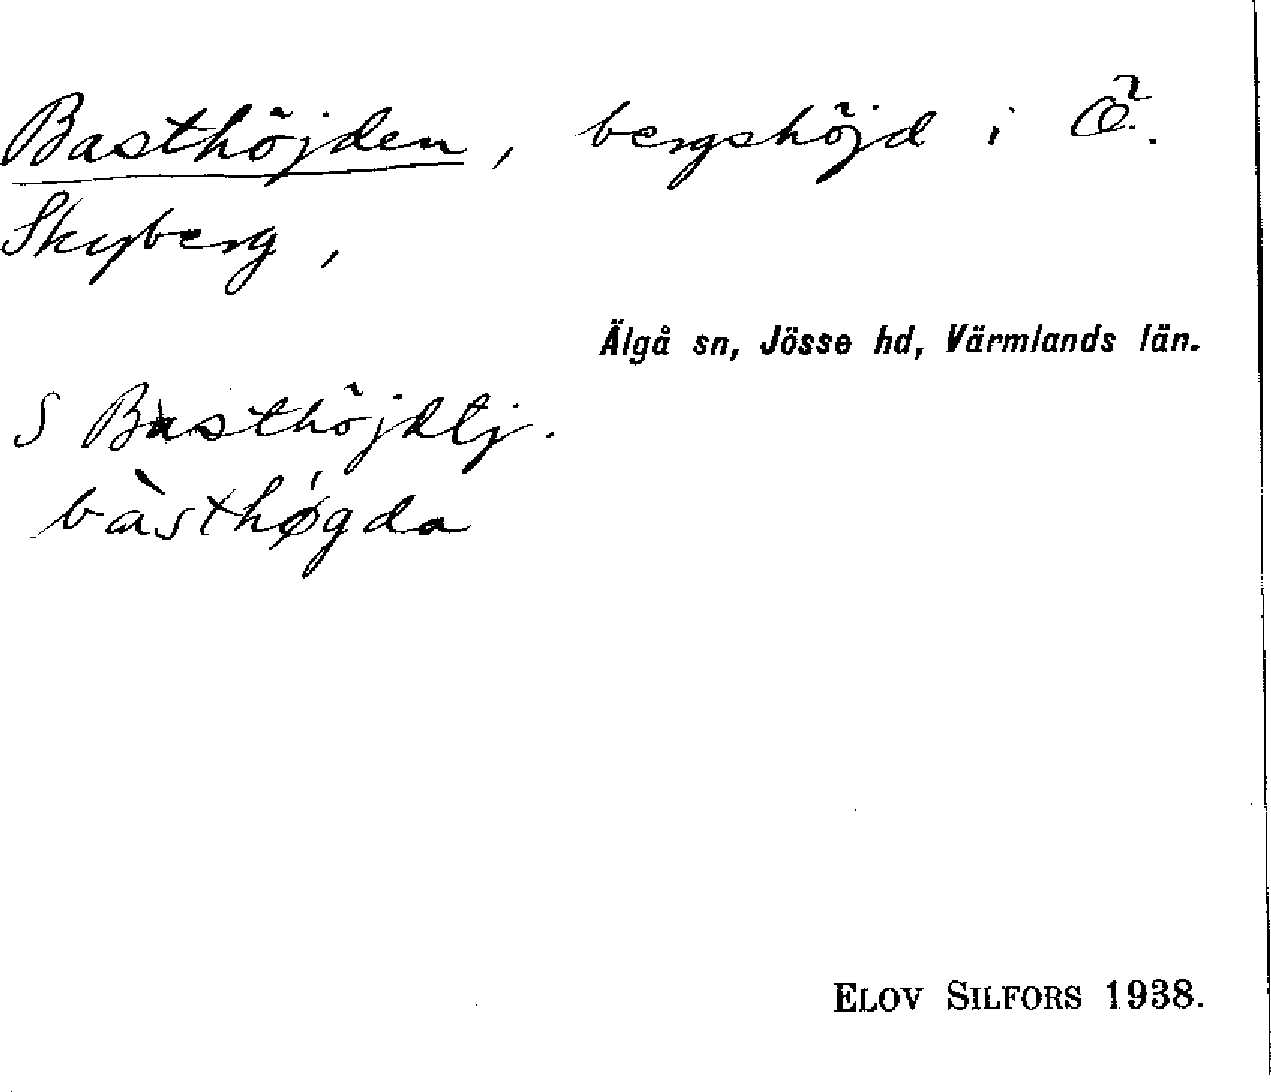 Basthöjden, bergshöjd i Ö.
Skyberg,
Älgå sn, Jösse hd, Värmlands län.
S Basthöjdtj.
bàsthǿgda
ELOV SILFORS 1938.